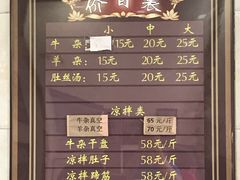 价目表
小 中 大
牛杂: 15元 20元 25元
羊杂: 15元 20元 25元
肚丝汤: 15元 20元 25元
凉拌类
牛杂真空 65元/斤
羊杂真空 70元/斤
牛杂干盘 58元/斤
凉拌肚子 58元/斤
凉拌蹄筋 58元/斤